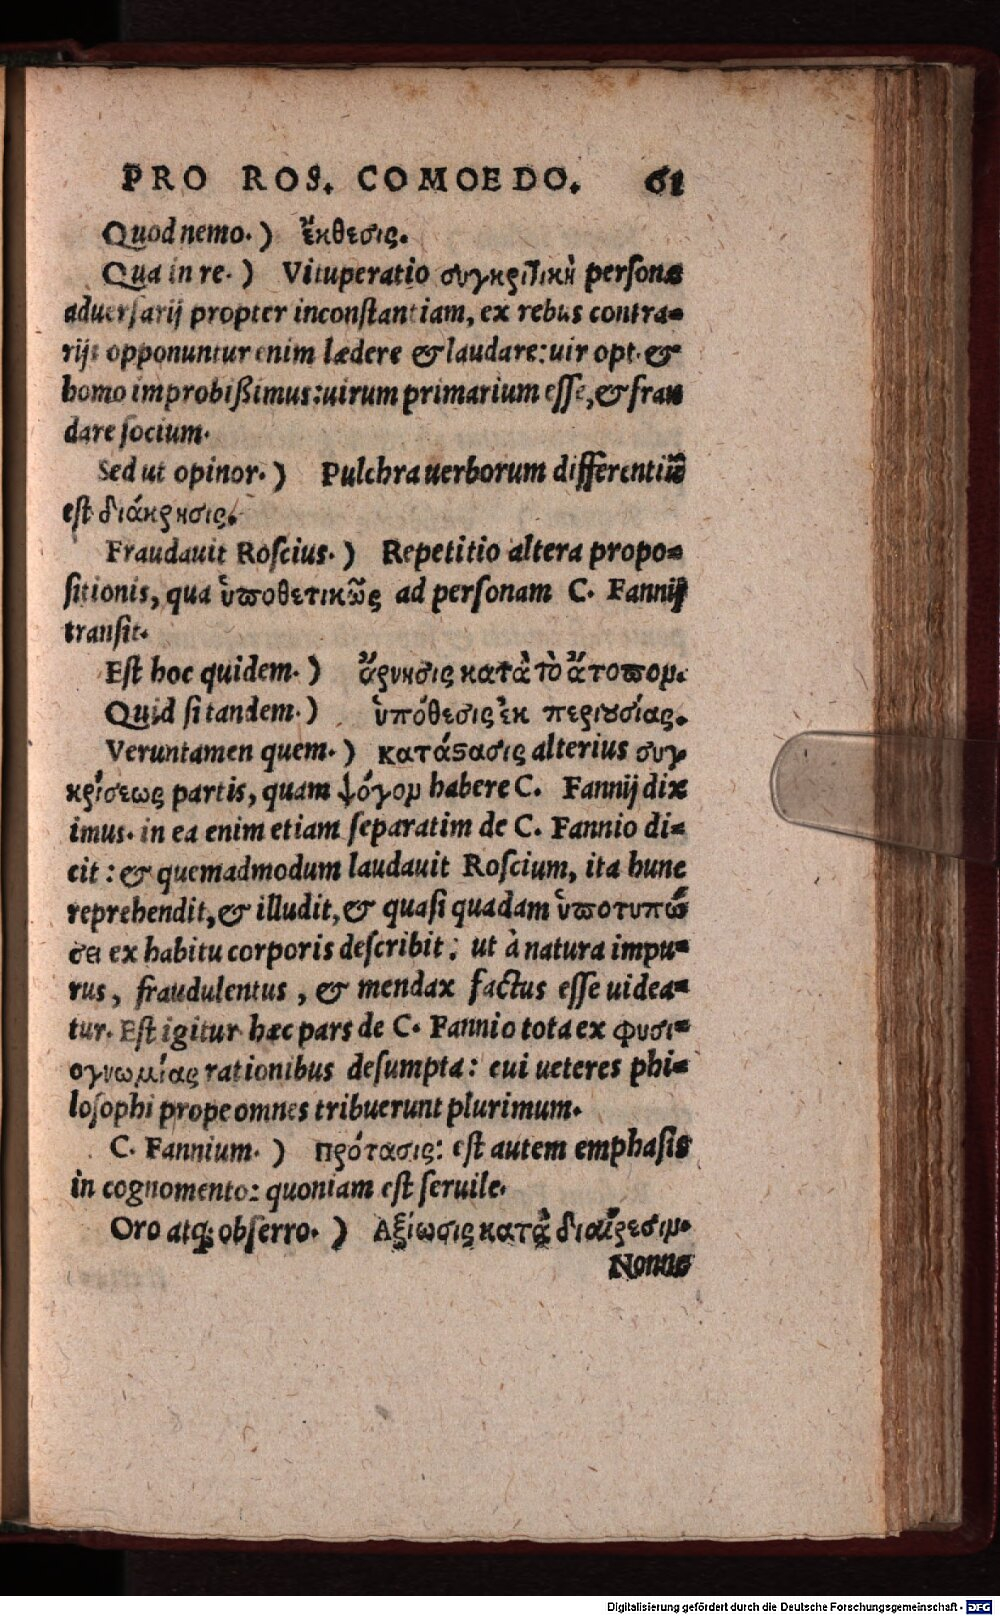 PRO ROS. COMOEDO. 61
Quod nemo.) ἔκθεσις.
Qua in re.) Vituperatio συγκριτικὴ personæ
aduersarij propter inconstantiam, ex rebus contra-
rijs opponuntur enim lædere & laudare: uir opt. &
homo improbißimus: uirum primarium esse, & frau
dare socium.
Sed ut opinor.) Pulchra uerborum differentiũ
est διάκρησις.
Fraudauit Roscius.) Repetitio altera propo-
sitionis, qua ὑποθετικῶς ad personam C. Fannij
transit.
Est hoc quidem.) ἄρνησις κατὰ τὸ ἄτοπομ.
Quid si tandem.) ὑπόθεσις ἐκ περιουσίας.
Veruntamen quem.) κατάστασις alterius συγ
κρίσεως partis, quam ψόγομ habere C. Fannij dix
imus. in ea enim etiam separatim de C. Fannio di-
cit: & quemadmodum laudauit Roscium, ita hunc
reprehendit, & illudit, & quasi quadam ὑποτυπώ
σει ex habitu corporis describit: ut à natura impu-
rus, fraudulentus, & mendax factus esse uidea-
tur. Est igitur hæc pars de C. Fannio tota ex φυσι-
ογνωμίας rationibus desumpta: cui ueteres phi-
losophi prope omnes tribuerunt plurimum.
C. Fannium.) πρότασις: est autem emphasis
in cognomento: quoniam est seruile.
Oro atq; obserro.) Ἀξίωσις κατὰ διαίρεσιμ.
Nonne
Digitalisierung gefördert durch die Deutsche Forschungsgemeinschaft - DFG